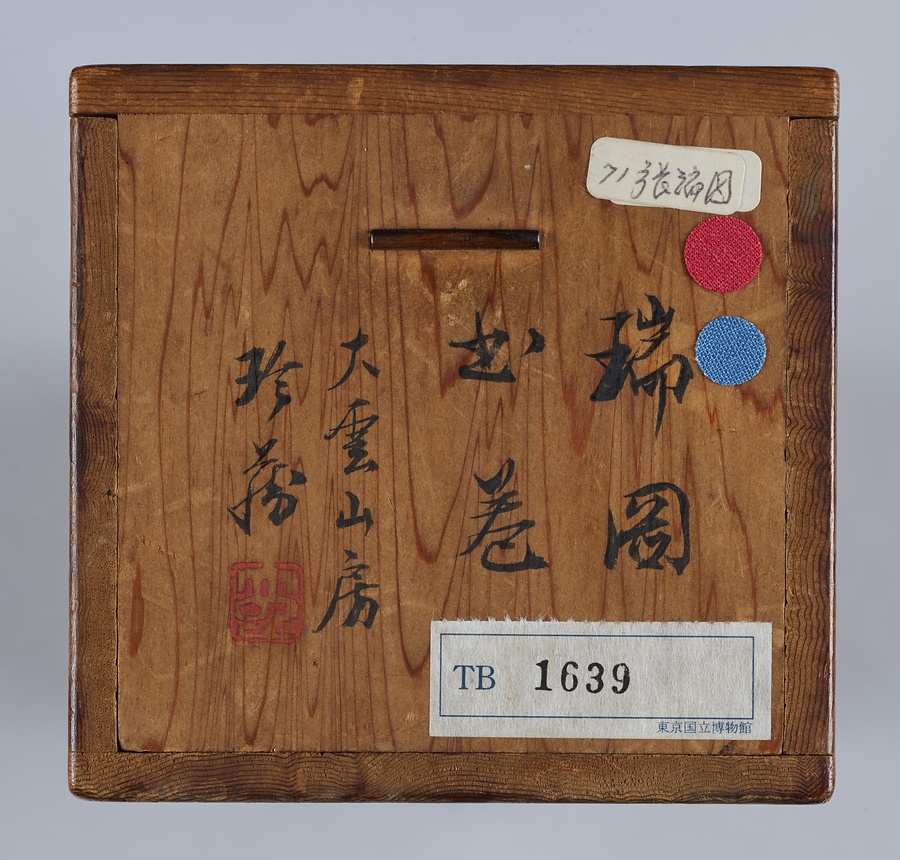 71 張瑞図
瑞圖
書卷
大雲山房
珍藏
TB 1639
東京国立博物館